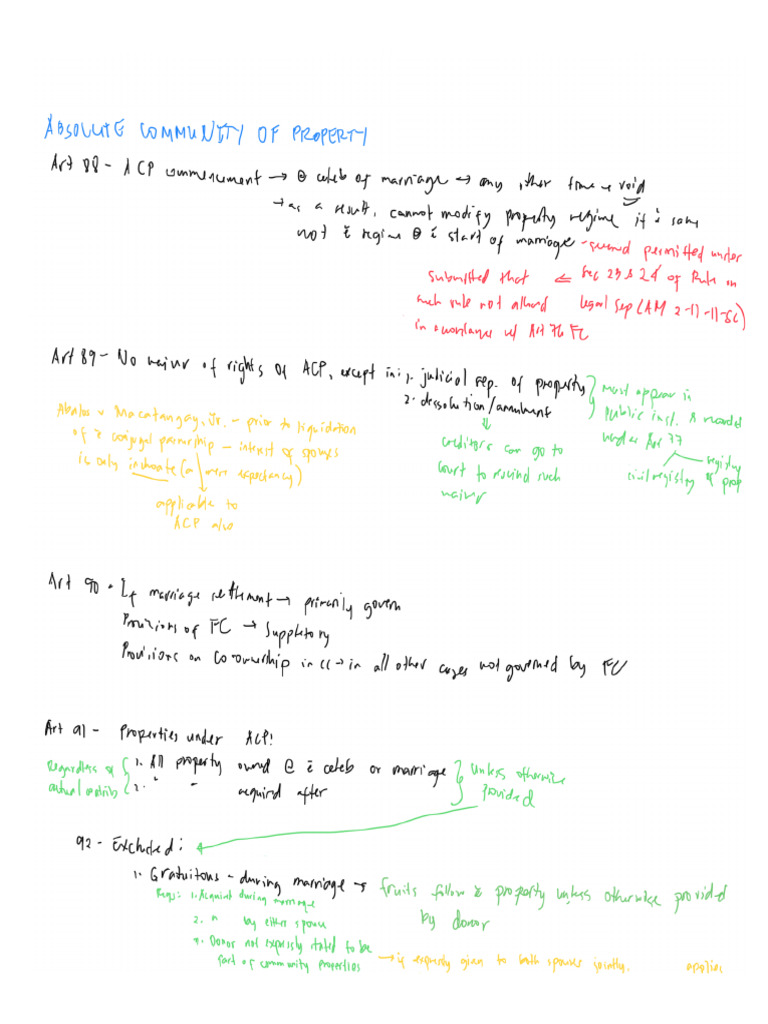 ABSOLUTE COMMUNITY OF PROPERTY
Art 88 - ACP commencement → @ celeb of marriage → any other time = void
→ as a result, cannot modify property regime if same
not regime @ start of marriage - permitted under
submitted that ⇐ Sec 23 & 24 of Rule on
such rule not allowed legal Sep (AM 2-11-11-SC)
in accordance w/ Art 76 FC
Art 89 - No waiver of rights of ACP, except in: 1. judicial sep. of property
2. dissolution/annulment
must appear in
public inst. & record
under Art 77
civil registry
registry
of prop
creditors can go to
court to rescind such
waiver
Abalos v Macatangay, Jr. - prior to liquidation
of conjugal partnership - interest of spouses
is only inchoate (a mere expectancy)
applicable to
ACP also
Art 90 - If marriage settlement → primarily govern
Provisions of FC → Suppletory
Provisions on co-ownership in CC → in all other cases not governed by FC
Art 91 - Properties under ACP:
Regardless of
1. All property owned @ celeb of marriage
2. " " acquired after
unless otherwise
provided
92 - Excluded:
1. Gratuitous - during marriage → fruits follow property unless otherwise provided
by donor
Reqs: 1. Acquired during marriage
2. " by either spouse
3. Donor not expressly stated to be
part of community properties → if expressly given to both spouses jointly. applies